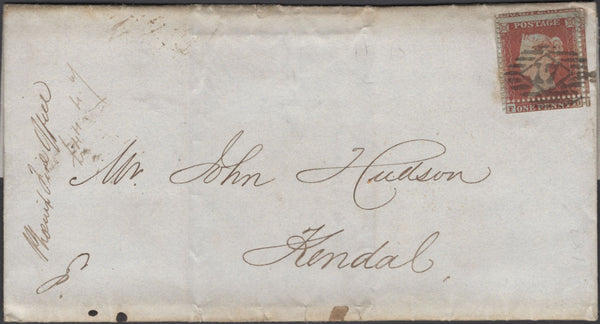 POSTAGE
ONE PENNY
Mr. John Hudson
Kendal.
Phoenix Fire Office